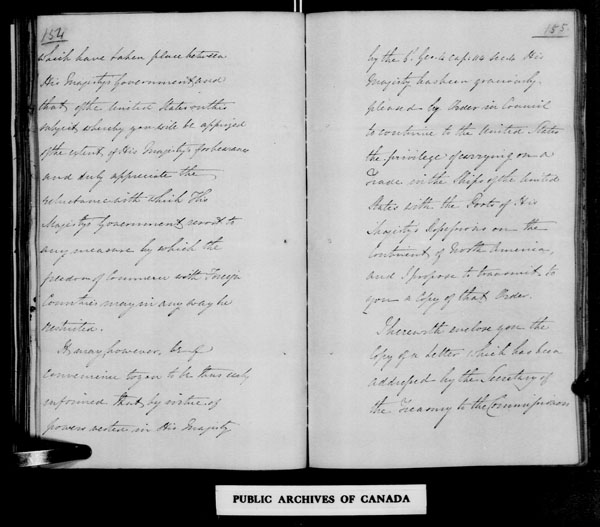 154
which have taken place between
His Majesty's Government and
that of the United States on this
subject whereby you will be apprized
of the extent of His Majesty's forbearance
and duly appreciate the
reluctance with which His
Majesty's Government resort to
any measure by which the
freedom of Commerce with Foreign
Countries may in any way be
restricted.
It may, however, be of
convenience to you to be thus early
informed that by virtue of
powers vested in His Majesty
155.
by the 6. Geo: 4 Cap. 114 Sec: 4 His
Majesty has been graciously
pleased by Order in Council
to continue to the United States
the privilege of carrying on a
Trade in the Ships of the United
States with the Ports of His
Majesty's Possessions on the
Continent of North America,
and I propose to transmit to
you a copy of that Order.
I herewith enclose you the
Copy of a letter which has been
addressed by the Secretary of
the Treasury to the Commissioners
PUBLIC ARCHIVES OF CANADA